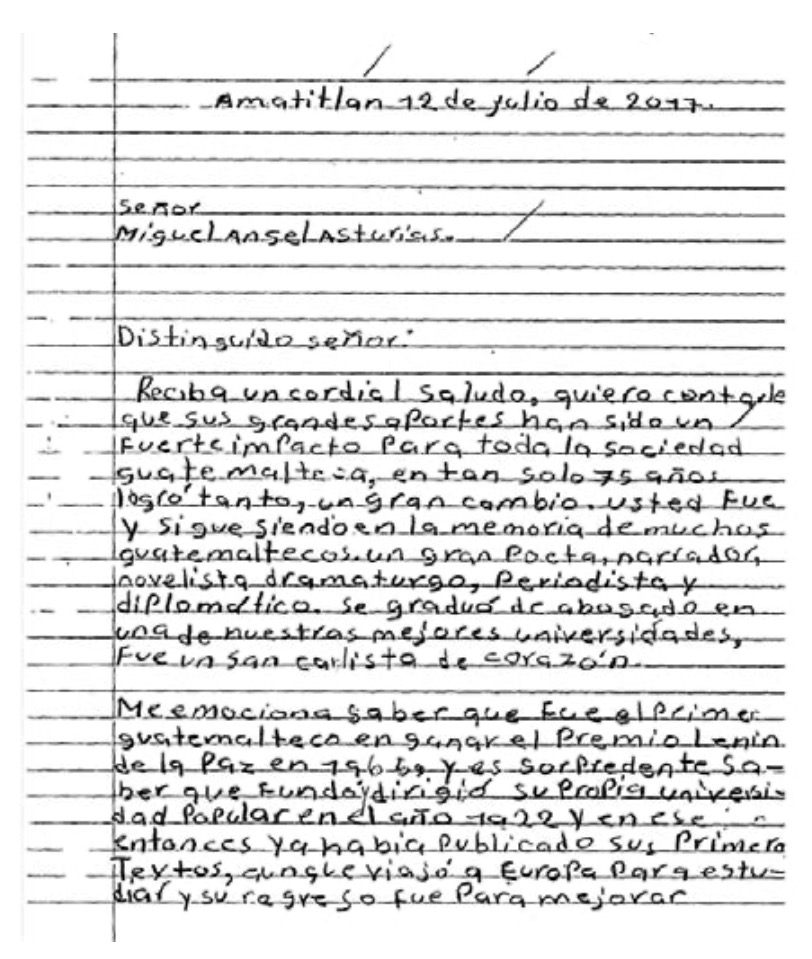 Amatitlan 12 de julio de 2017.
Señor
Miguel Angel Asturias.
Distinguido señor:
Reciba un cordial saludo, quiero contarle
que sus grandes aportes han sido un
fuerte impacto para toda la sociedad
guatemalteca, en tan solo 75 años
logró tanto, un gran cambio. usted fue
y sigue siendo en la memoria de muchos
guatemaltecos. un gran Poeta, narrador,
novelista dramaturgo, Periodista y
diplomático. se graduó de abogado en
una de nuestras mejores universidades,
Fue un san carlista de corazón.
Me emociona saber que fue el Primer
guatemalteco en ganar el Premio Lenin
de la Paz en y es sorpredente sa-
ber que fundó y dirigió su propia universi-
dad Popular en el año 1922 y en ese
entonces ya había publicado sus Primero
Textos, aunque viajó a Europa Para estu-
diar y su regreso fue Para mejorar